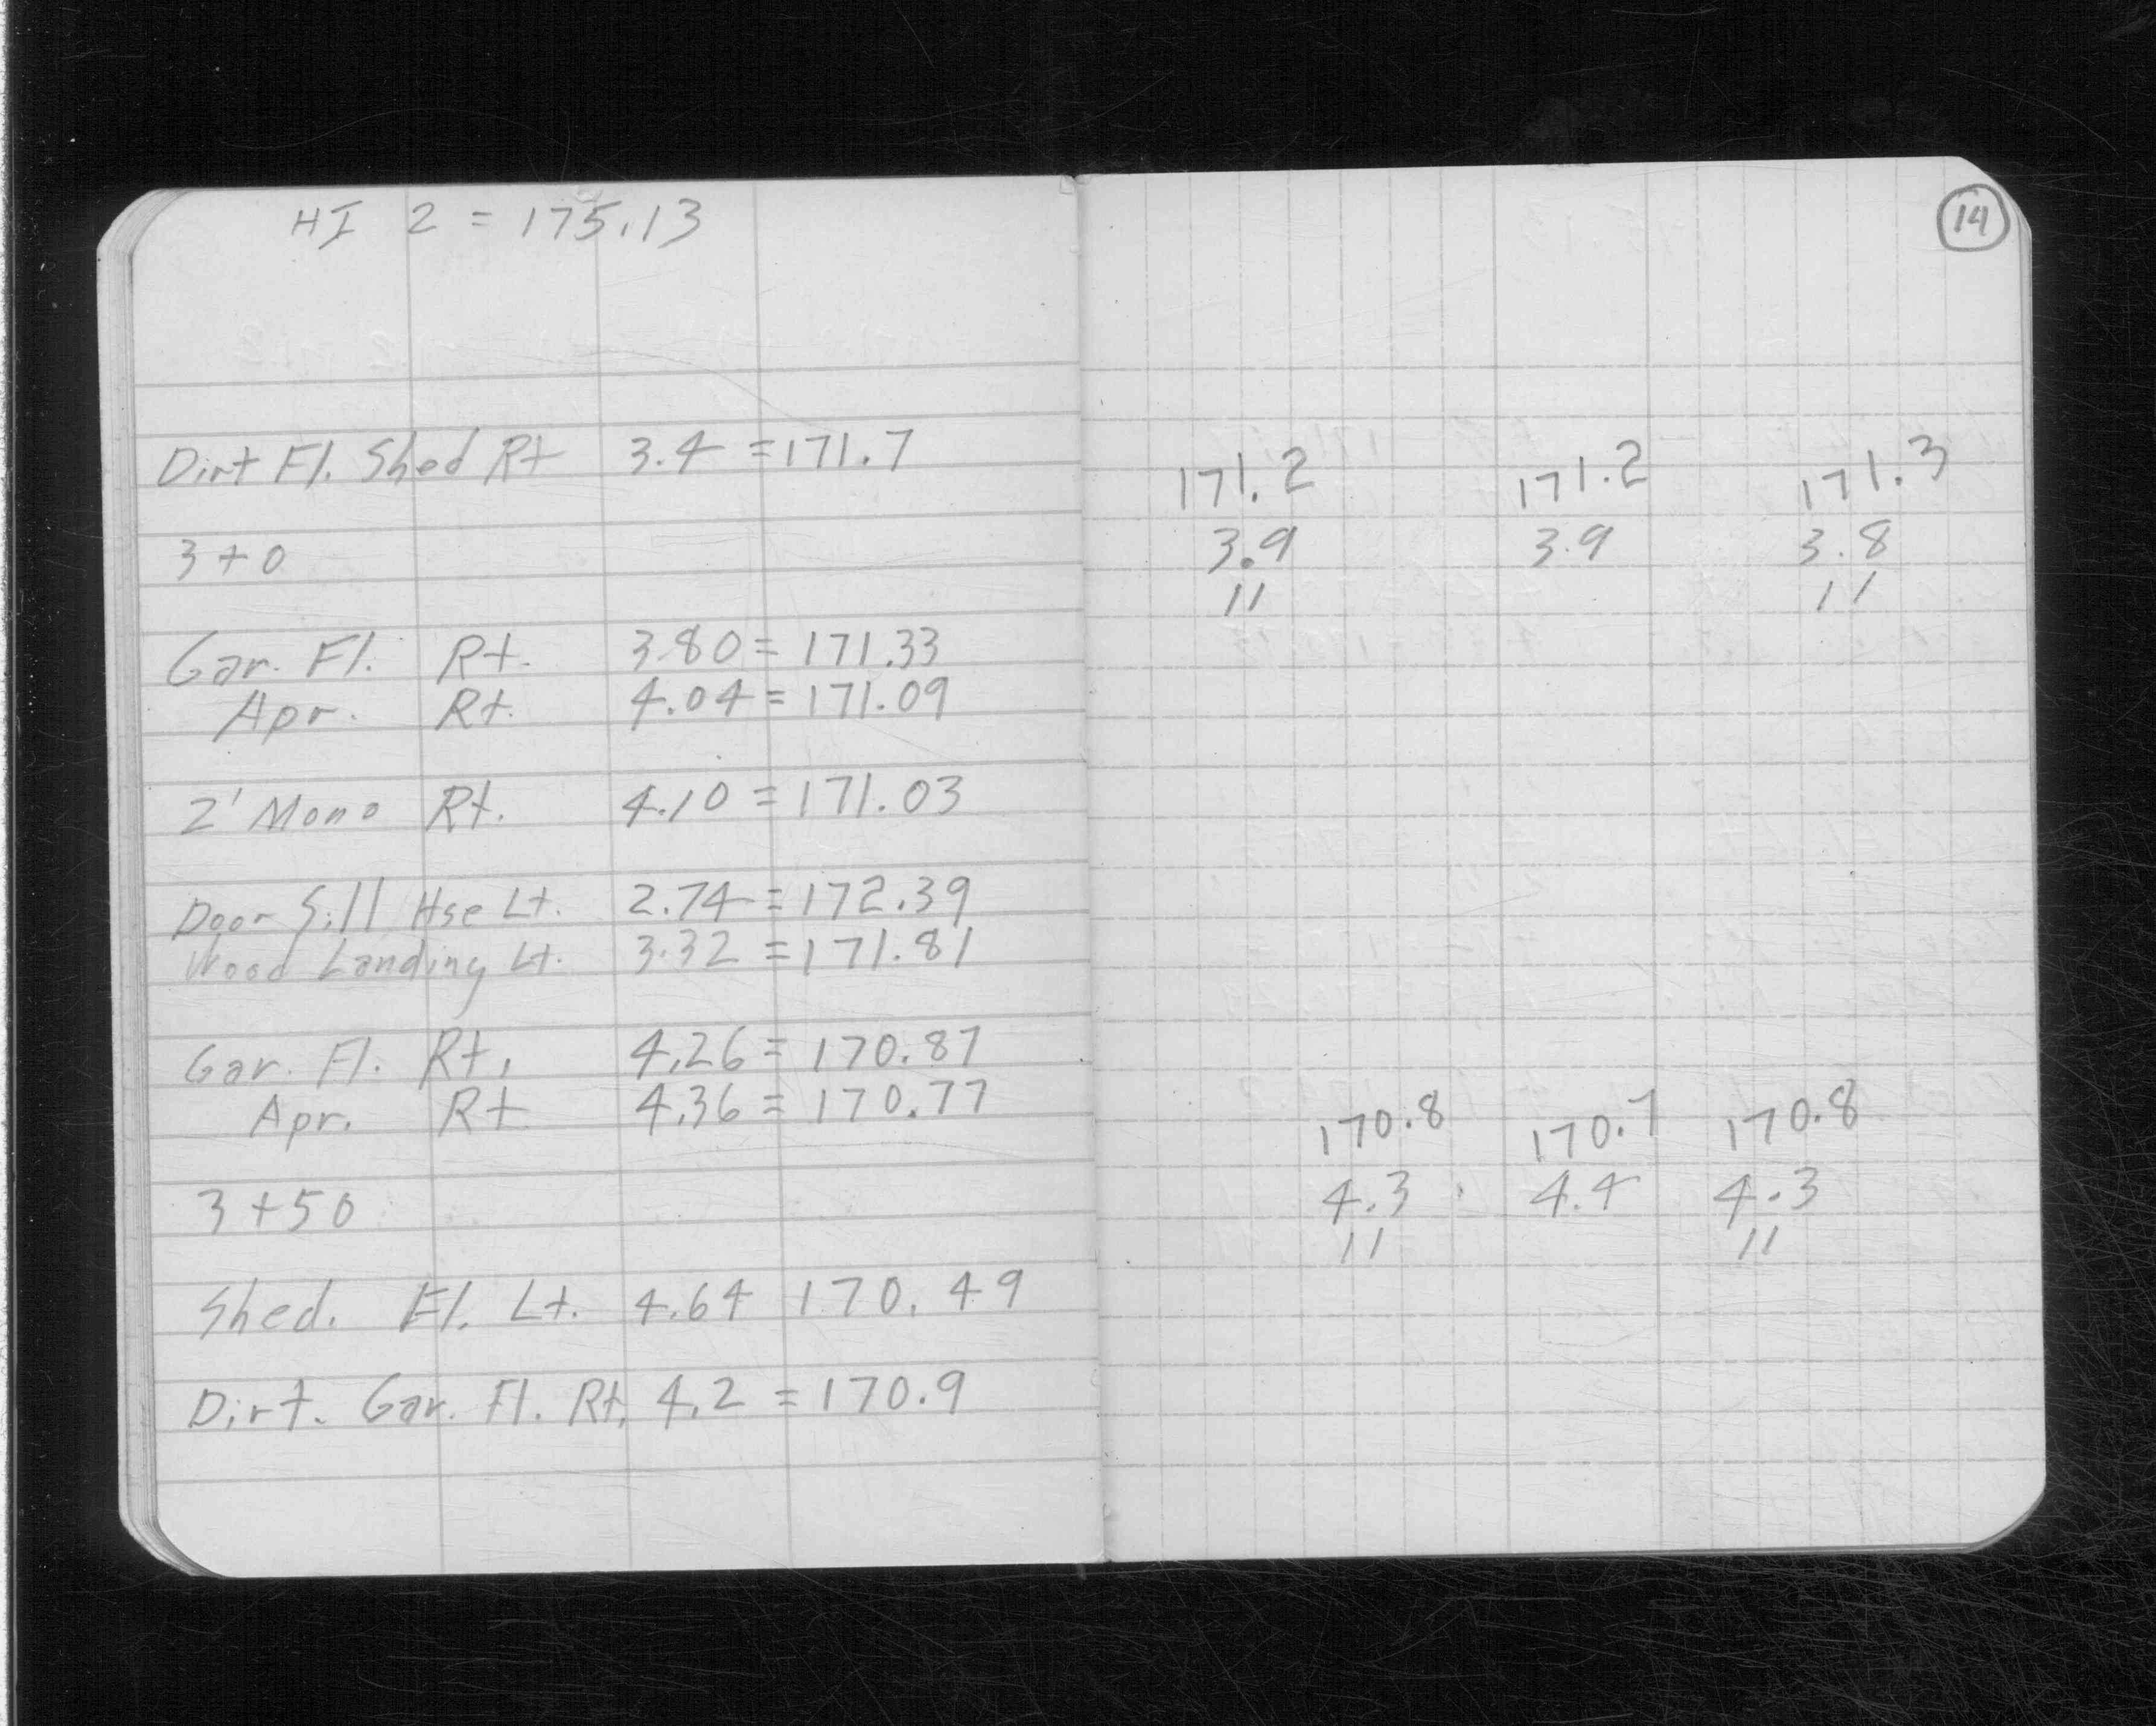 HI 2 = 175.13
Dirt Fl. Shed Rt 3.4 = 171.7
3+0
Gar. Fl. Rt. 3.80 = 171.33
Apr. Rt. 4.04 = 171.09
2' Mono Rt. 4.10 = 171.03
Door Sill Hse Lt. 2.74 = 172.39
Wood Landing Lt. 3.32 = 171.81
Gar. Fl. Rt. 4.26 = 170.87
Apr. Rt 4.36 = 170.77
3+50
Shed. Fl. Lt. 4.64 170.49
Dirt. Gar. Fl. Rt. 4.2 = 170.9
14
171.2 171.2 171.3
3.9 3.9 3.8
11 11
170.8 170.7 170.8
4.3 4.4 4.3
11 11